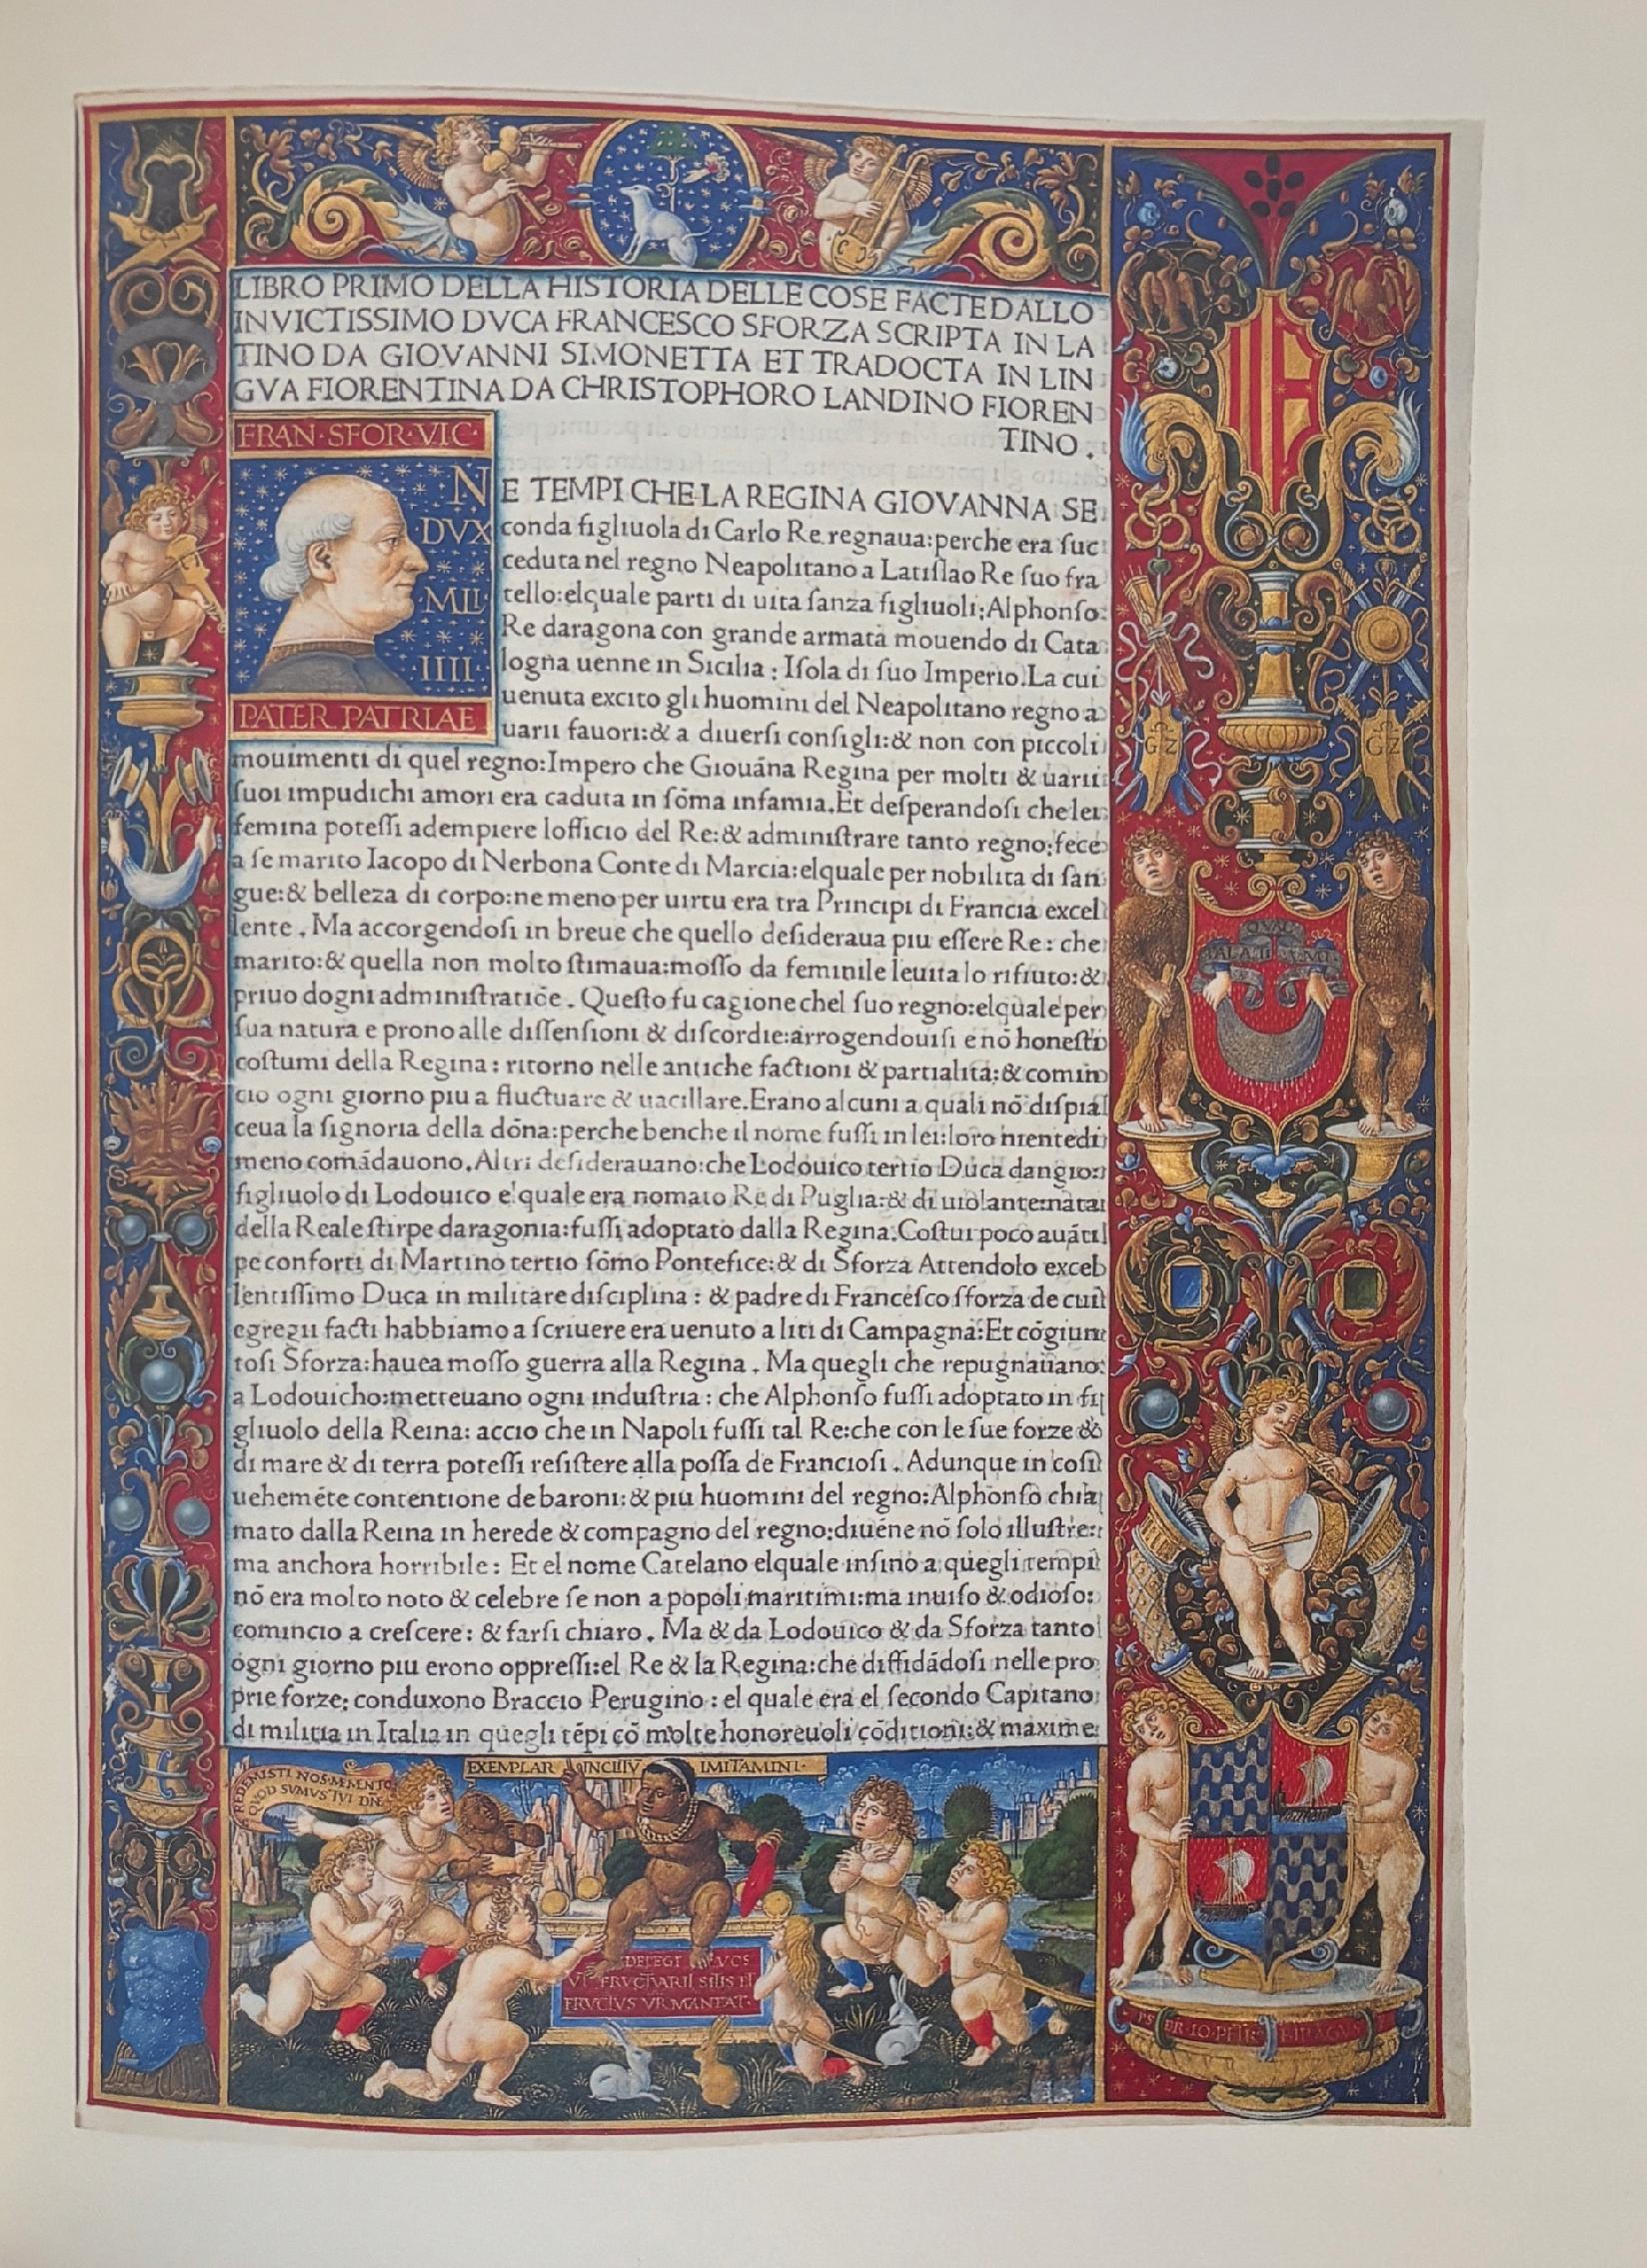 LIBRO PRIMO DELLA HISTORIA DELLE COSE FACTE DALLO
INVICTISSIMO DVCA FRANCESCO SFORZA SCRIPTA IN LA
TINO DA GIOVANNI SIMONETTA ET TRADOCTA IN LIN
GVA FIORENTINA DA CHRISTOPHORO LANDINO FIOREN
TINO.
FRAN·SFOR·VIC·
DVX
MLI
IIII·
PATER PATRIAE
NE TEMPI CHE LA REGINA GIOVANNA SE
conda figliuola di Carlo Re regnaua:perche era ſuc
ceduta nel regno Neapolitano a Latiſlao Re ſuo fra
tello:elquale parti di uita ſanza figliuoli:Alphonſo
Re daragona con grande armata mouendo di Cata
logna uenne in Sicilia: Iſola di ſuo Imperio.La cui
uenuta excito gli huomini del Neapolitano regno a
uarii fauori:& a diuerſi conſigli:& non con piccoli
mouimenti di quel regno:Impero che Giouāna Regina per molti & uarii
ſuoi impudichi amori era caduta in ſōma infamia.Et deſperandoſi che lei
femina poteſſi adempiere lofficio del Re:& adminiſtrare tanto regno:fece
a ſe marito Iacopo di Nerbona Conte di Marcia:elquale per nobilita di ſan
gue:& belleza di corpo:ne meno per uirtu era tra Principi di Francia excel
lente. Ma accorgendoſi in breue che quello deſideraua piu eſſere Re: che
marito:& quella non molto ſtimaua:moſſo da feminile leuita lo rifiuto:&
priuo dogni adminiſtratiōe. Queſto fu cagione chel ſuo regno:elquale per
ſua natura e prono alle diſſenſioni & diſcordie:arrogendouiſi e nō honeſti
coſtumi della Regina: ritorno nelle antiche factioni & partialita:& comin
cio ogni giorno piu a fluctuare & uacillare.Erano alcuni a quali nō diſpia
ceua la ſignoria della dōna:perche benche il nome fuſſi in lei:loro niente di
meno comādauono.Altri deſiderauano:che Lodouico tertio Duca dangio:
figliuolo di Lodouico elquale era nomato Re di Puglia:& di uiolante:nata
della Reale ſtirpe daragonia:fuſſi adoptato dalla Regina.Coſtui poco auāti
pe conforti di Martino tertio ſōmo Pontefice:& di Sforza Attendolo excel
lentiſſimo Duca in militare diſciplina: & padre di Franceſco ſforza de cui
egregii facti habbiamo a ſcriuere era uenuto a liti di Campagna:Et cōgiun
toſi Sforza:hauea moſſo guerra alla Regina. Ma quegli che repugnauano
a Lodouicho:metteuano ogni induſtria: che Alphonſo fuſſi adoptato in fi
gliuolo della Reina: accio che in Napoli fuſſi tal Re:che con le ſue forze &
di mare & di terra poteſſi reſiſtere alla poſſa de Francioſi. Adunque in coſi
uehemēte contentione de baroni:& piu huomini del regno:Alphonſo chia
mato dalla Reina in herede & compagno del regno:diuēne nō ſolo illuſtre:
ma anchora horribile: Et el nome Catelano elquale inſino a quegli tempi
nō era molto noto & celebre ſe non a popoli maritimi:ma inuiſo & odioſo:
comincio a creſcere: & farſi chiaro. Ma & da Lodouico & da Sforza tanto
ogni giorno piu erono oppreſſi:el Re & la Regina:che diffidādoſi nelle pro
prie forze: conduxono Braccio Perugino: el quale era el ſecondo Capitano
di militia in Italia in quegli tēpi cō molte honoreuoli cōditioni:& maxime
G Z
G Z
QVAL
REDEMISTI NOS·MEMENTO
QVOD SVMVS TVI DNE
EXEMPLAR IMITAMINI·
DELEGI VOS
VT FRVCTVARII SITIS ET
FRVCTVS VR MANEAT·
PS BR·IO·PETR BIRAGVS